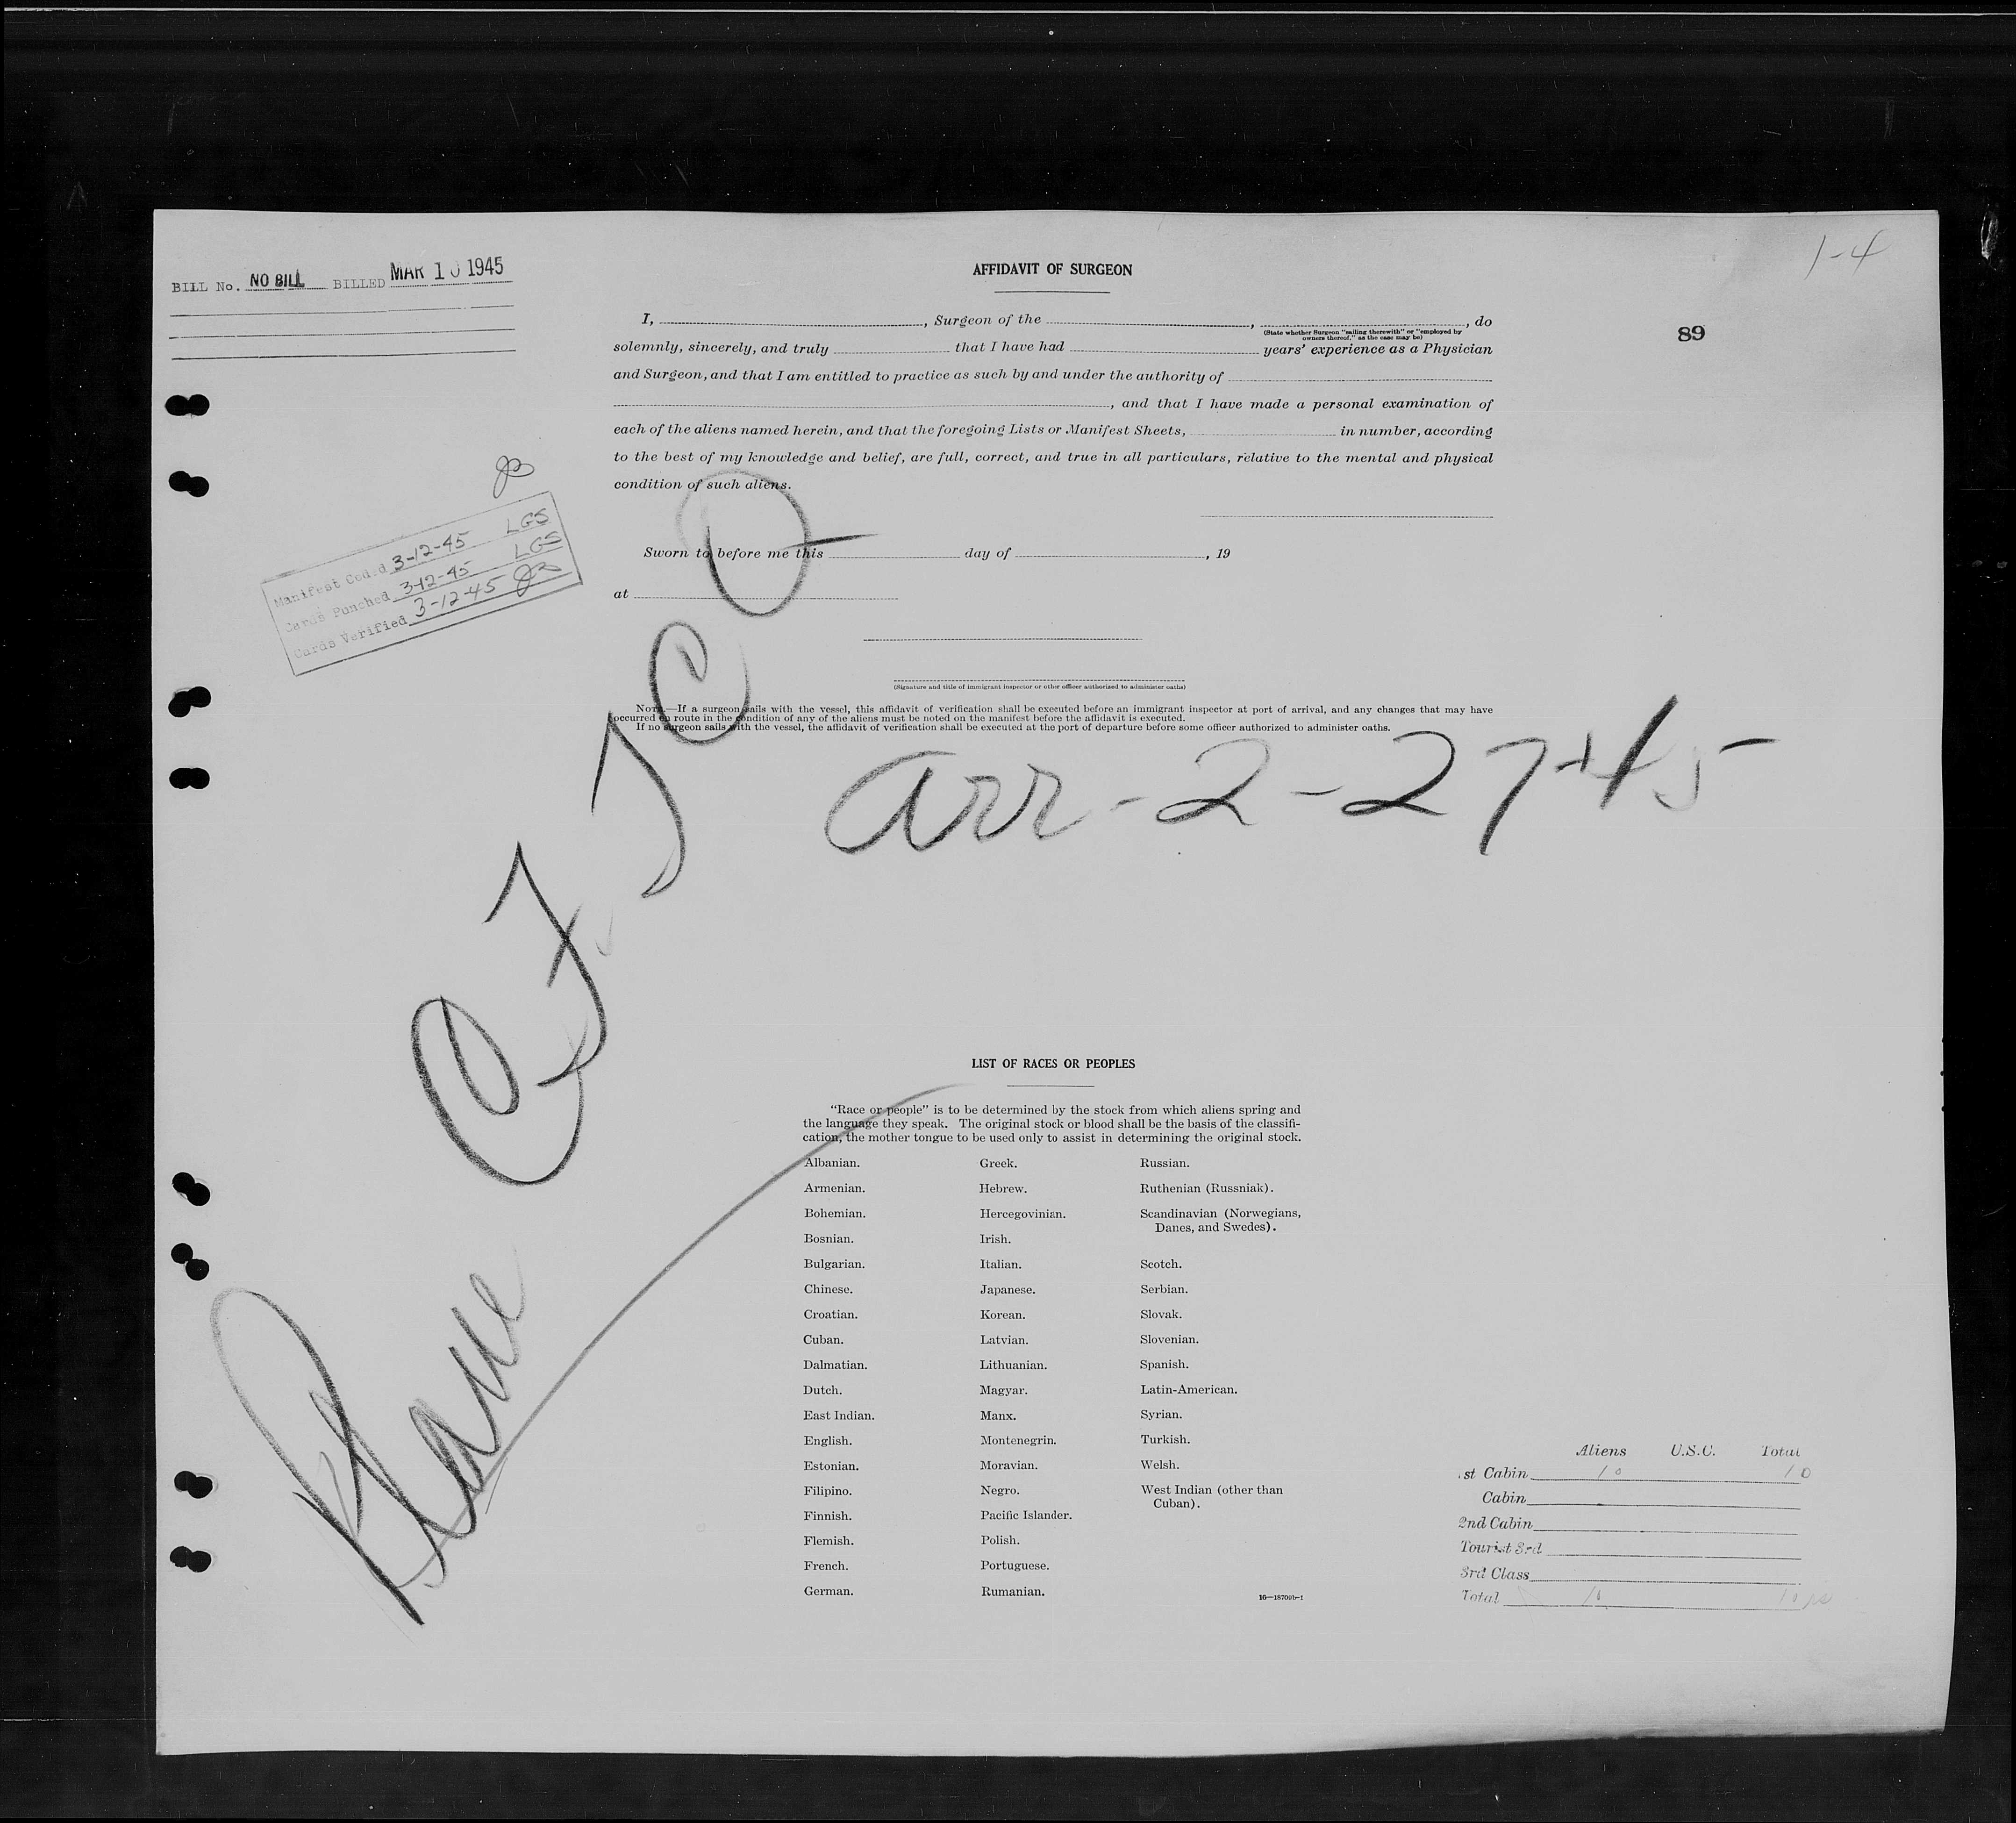 1-4
BILL No. NO BILL BILLED MAR 10 1945
AFFIDAVIT OF SURGEON
89
I, , Surgeon of the , , do
(State whether Surgeon "sailing therewith" or "employed by
owners thereof," as the case may be)
solemnly, sincerely, and truly that I have had years' experience as a Physician
and Surgeon, and that I am entitled to practice as such by and under the authority of
, and that I have made a personal examination of
each of the aliens named herein, and that the foregoing Lists or Manifest Sheets, in number, according
to the best of my knowledge and belief, are full, correct, and true in all particulars, relative to the mental and physical
condition of such aliens.
Manifest Coded 3-12-45 LGS
Cards Punched 3-12-45 LGS
Cards Verified 3-12-45
Sworn to before me this day of , 19
at
(Signature and title of immigrant inspector or other officer authorized to administer oaths)
NOTE.—If a surgeon sails with the vessel, this affidavit of verification shall be executed before an immigrant inspector at port of arrival, and any changes that may have
occurred en route in the condition of any of the aliens must be noted on the manifest before the affidavit is executed.
If no surgeon sails with the vessel, the affidavit of verification shall be executed at the port of departure before some officer authorized to administer oaths.
arr-2-27-45
Plane
LIST OF RACES OR PEOPLES
"Race or people" is to be determined by the stock from which aliens spring and
the language they speak. The original stock or blood shall be the basis of the classifi-
cation, the mother tongue to be used only to assist in determining the original stock.
Albanian. Greek. Russian.
Armenian. Hebrew. Ruthenian (Russniak).
Bohemian. Hercegovinian. Scandinavian (Norwegians,
Danes, and Swedes).
Bosnian. Irish.
Bulgarian. Italian. Scotch.
Chinese. Japanese. Serbian.
Croatian. Korean. Slovak.
Cuban. Latvian. Slovenian.
Dalmatian. Lithuanian. Spanish.
Dutch. Magyar. Latin-American.
East Indian. Manx. Syrian.
English. Montenegrin. Turkish.
Estonian. Moravian. Welsh.
Filipino. Negro. West Indian (other than
Cuban).
Finnish. Pacific Islander.
Flemish. Polish.
French. Portuguese.
German. Rumanian.
16—18709b-1
Aliens U.S.C. Total
st Cabin 10 10
Cabin
2nd Cabin
Tourist 3rd
3rd Class
Total 10 10